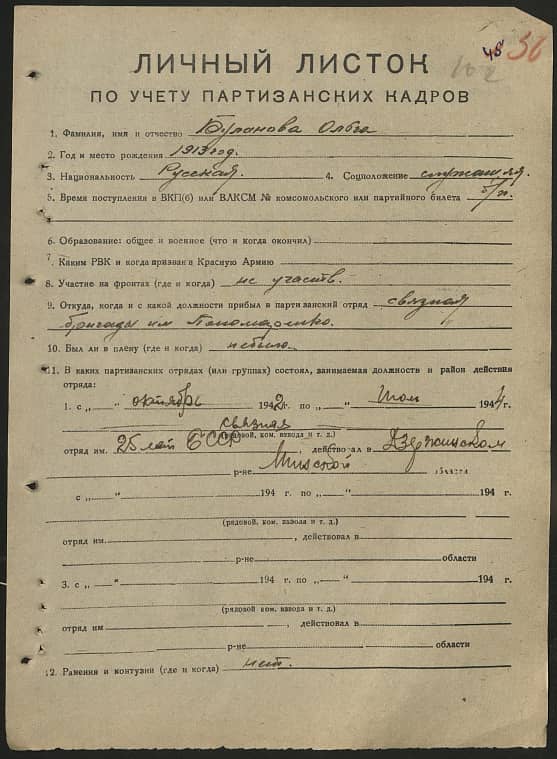 48 56
102
ЛИЧНЫЙ ЛИСТОК
ПО УЧЕТУ ПАРТИЗАНСКИХ КАДРОВ
1. Фамилия, имя и отчество Буланова Ольга
2. Год и место рождения 1913 год.
3. Национальность Русская. 4. Соцположение служащая.
5. Время поступления в ВКП(б) или ВЛКСМ № комсомольского или партийного билета б/п.
6. Образование: общее и военное (что и когда окончил)
7. Каким РВК и когда призван в Красную Армию
8. Участие на фронтах (где и когда) не участв.
9. Откуда, когда и с какой должности прибыл в партизанский отряд связная
бригады им Пономаренко.
10. Был ли в плену (где и когда) небыла.
11. В каких партизанских отрядах (или группах) состоял, занимаемая должность и район действия
отряда:
1. с „ “ октябрь 1942 г. по „ “ Июль 1944 г.
связная
(рядовой, ком. взвода и т. д.)
отряд им. 25 лет БССР, действовал в Дзержинском
р-не Минской области
с „ “ 194 г. по „ “ 194 г.
(рядовой, ком. взвода и т. д.)
отряд им. , действовал в
р-не области
3. с „ “ 194 г. по „ “ 194 г.
(рядовой, ком. взвода и т. д.)
отряд им , действовал в
р-не области
12. Ранения и контузии (где и когда) нет.